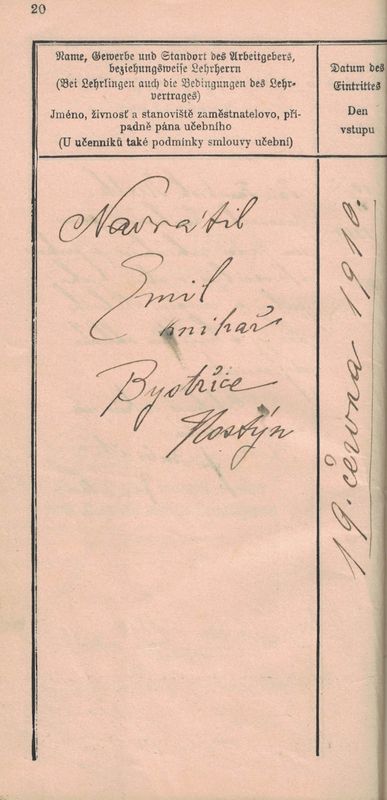 20
Name, Gewerbe und Standort des Arbeitgebers,
beziehungsweise Lehrherrn
(Bei Lehrlingen auch die Bedingungen des Lehr-
vertrages)
Jméno, živnosť a stanoviště zaměstnatelovo, pří-
padně pána učebního
(U učenníků také podmínky smlouvy učební)
Datum des
Eintrittes
Den
vstupu
Navrátil
Emil
knihař
Bystřice
Hostýn
19. června 1910.